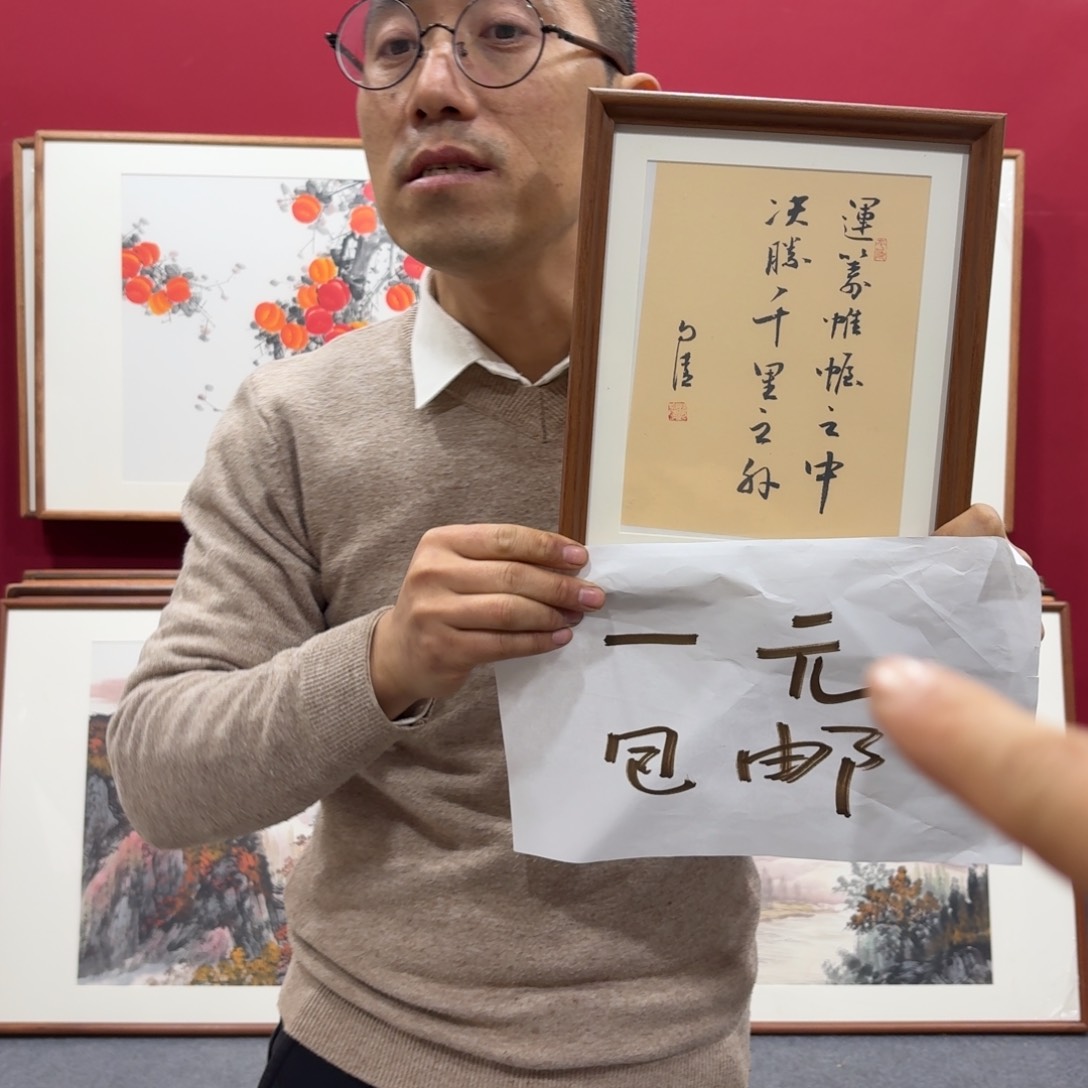 運籌帷幄之中
決勝千里之外
一元
包邮